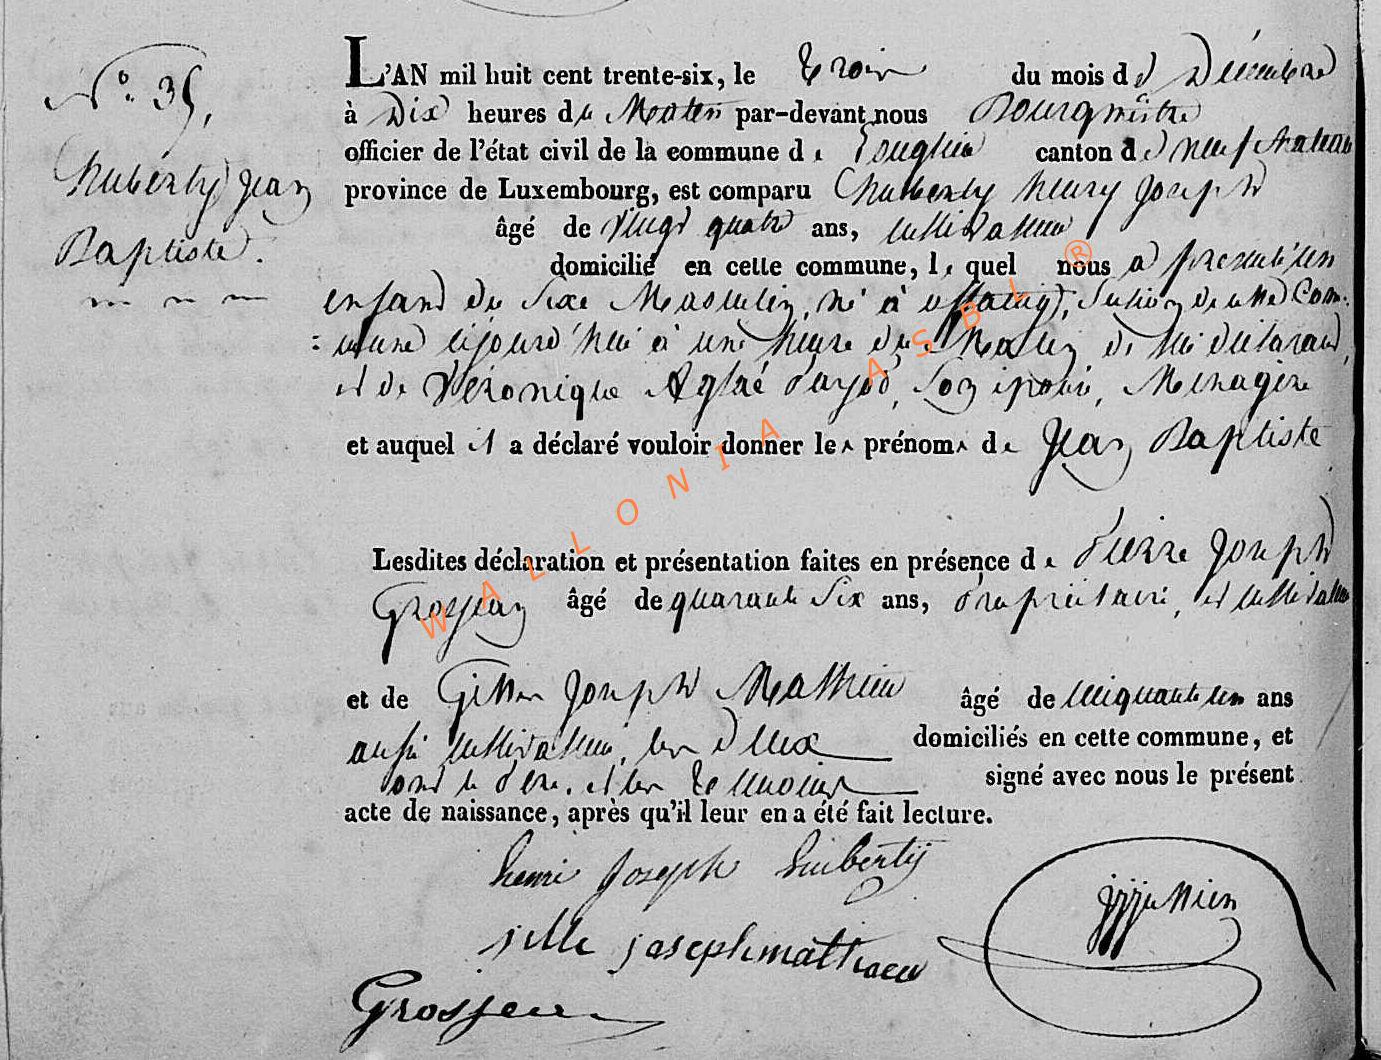 N.° 35,
Huberty Jean
Baptiste.
L'AN mil huit cent trente-six, le trois du mois de Décembre
à Dix heures du Matin par-devant nous Bourgmestre
officier de l'état civil de la commune de canton de neufchateau
province de Luxembourg, est comparu Huberty henry Joseph
âgé de vingt quatre ans, cultivateur
domicilié en cette commune, le quel nous a presenté un
enfant du sexe Masculin, né à , section de cette Com-
:mune à une heure du Matin, de lui déclarant,
et de Véronique Aglaé , son épouse, Menagère
et auquel il a déclaré vouloir donner les prénoms de Jean Baptiste
Lesdites déclaration et présentation faites en présence de Pierre Joseph
Grosjean âgé de quarante six ans, Propriétaire, et cultivateur
et de Joseph Mathieu âgé de cinquante un ans
aussi cultivateur, les deux domiciliés en cette commune, et
ont le Père, et les temoins signé avec nous le présent
acte de naissance, après qu'il leur en a été fait lecture.
henri Joseph huberty
jille joseph mathieu
Grosjean
WALLONIA ASBL ®